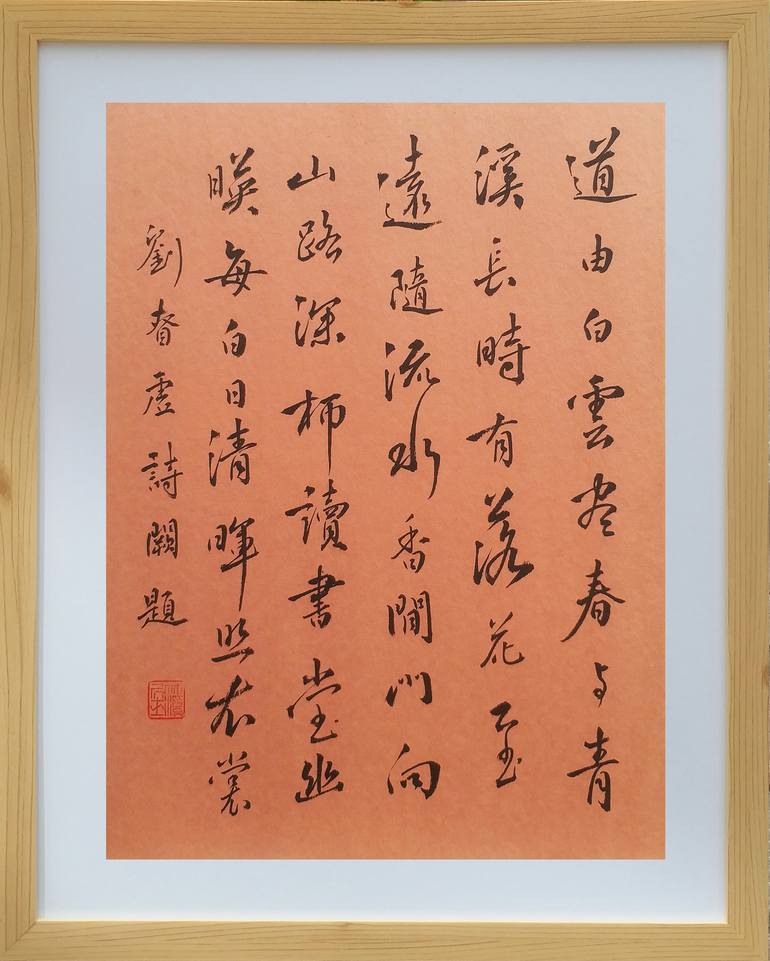 道由白雲尽春与青
溪長時有落花至
遠隨流水香閒門向
山路深柳讀書堂幽
暎每白日清暉照衣裳
劉眘虛詩闕題